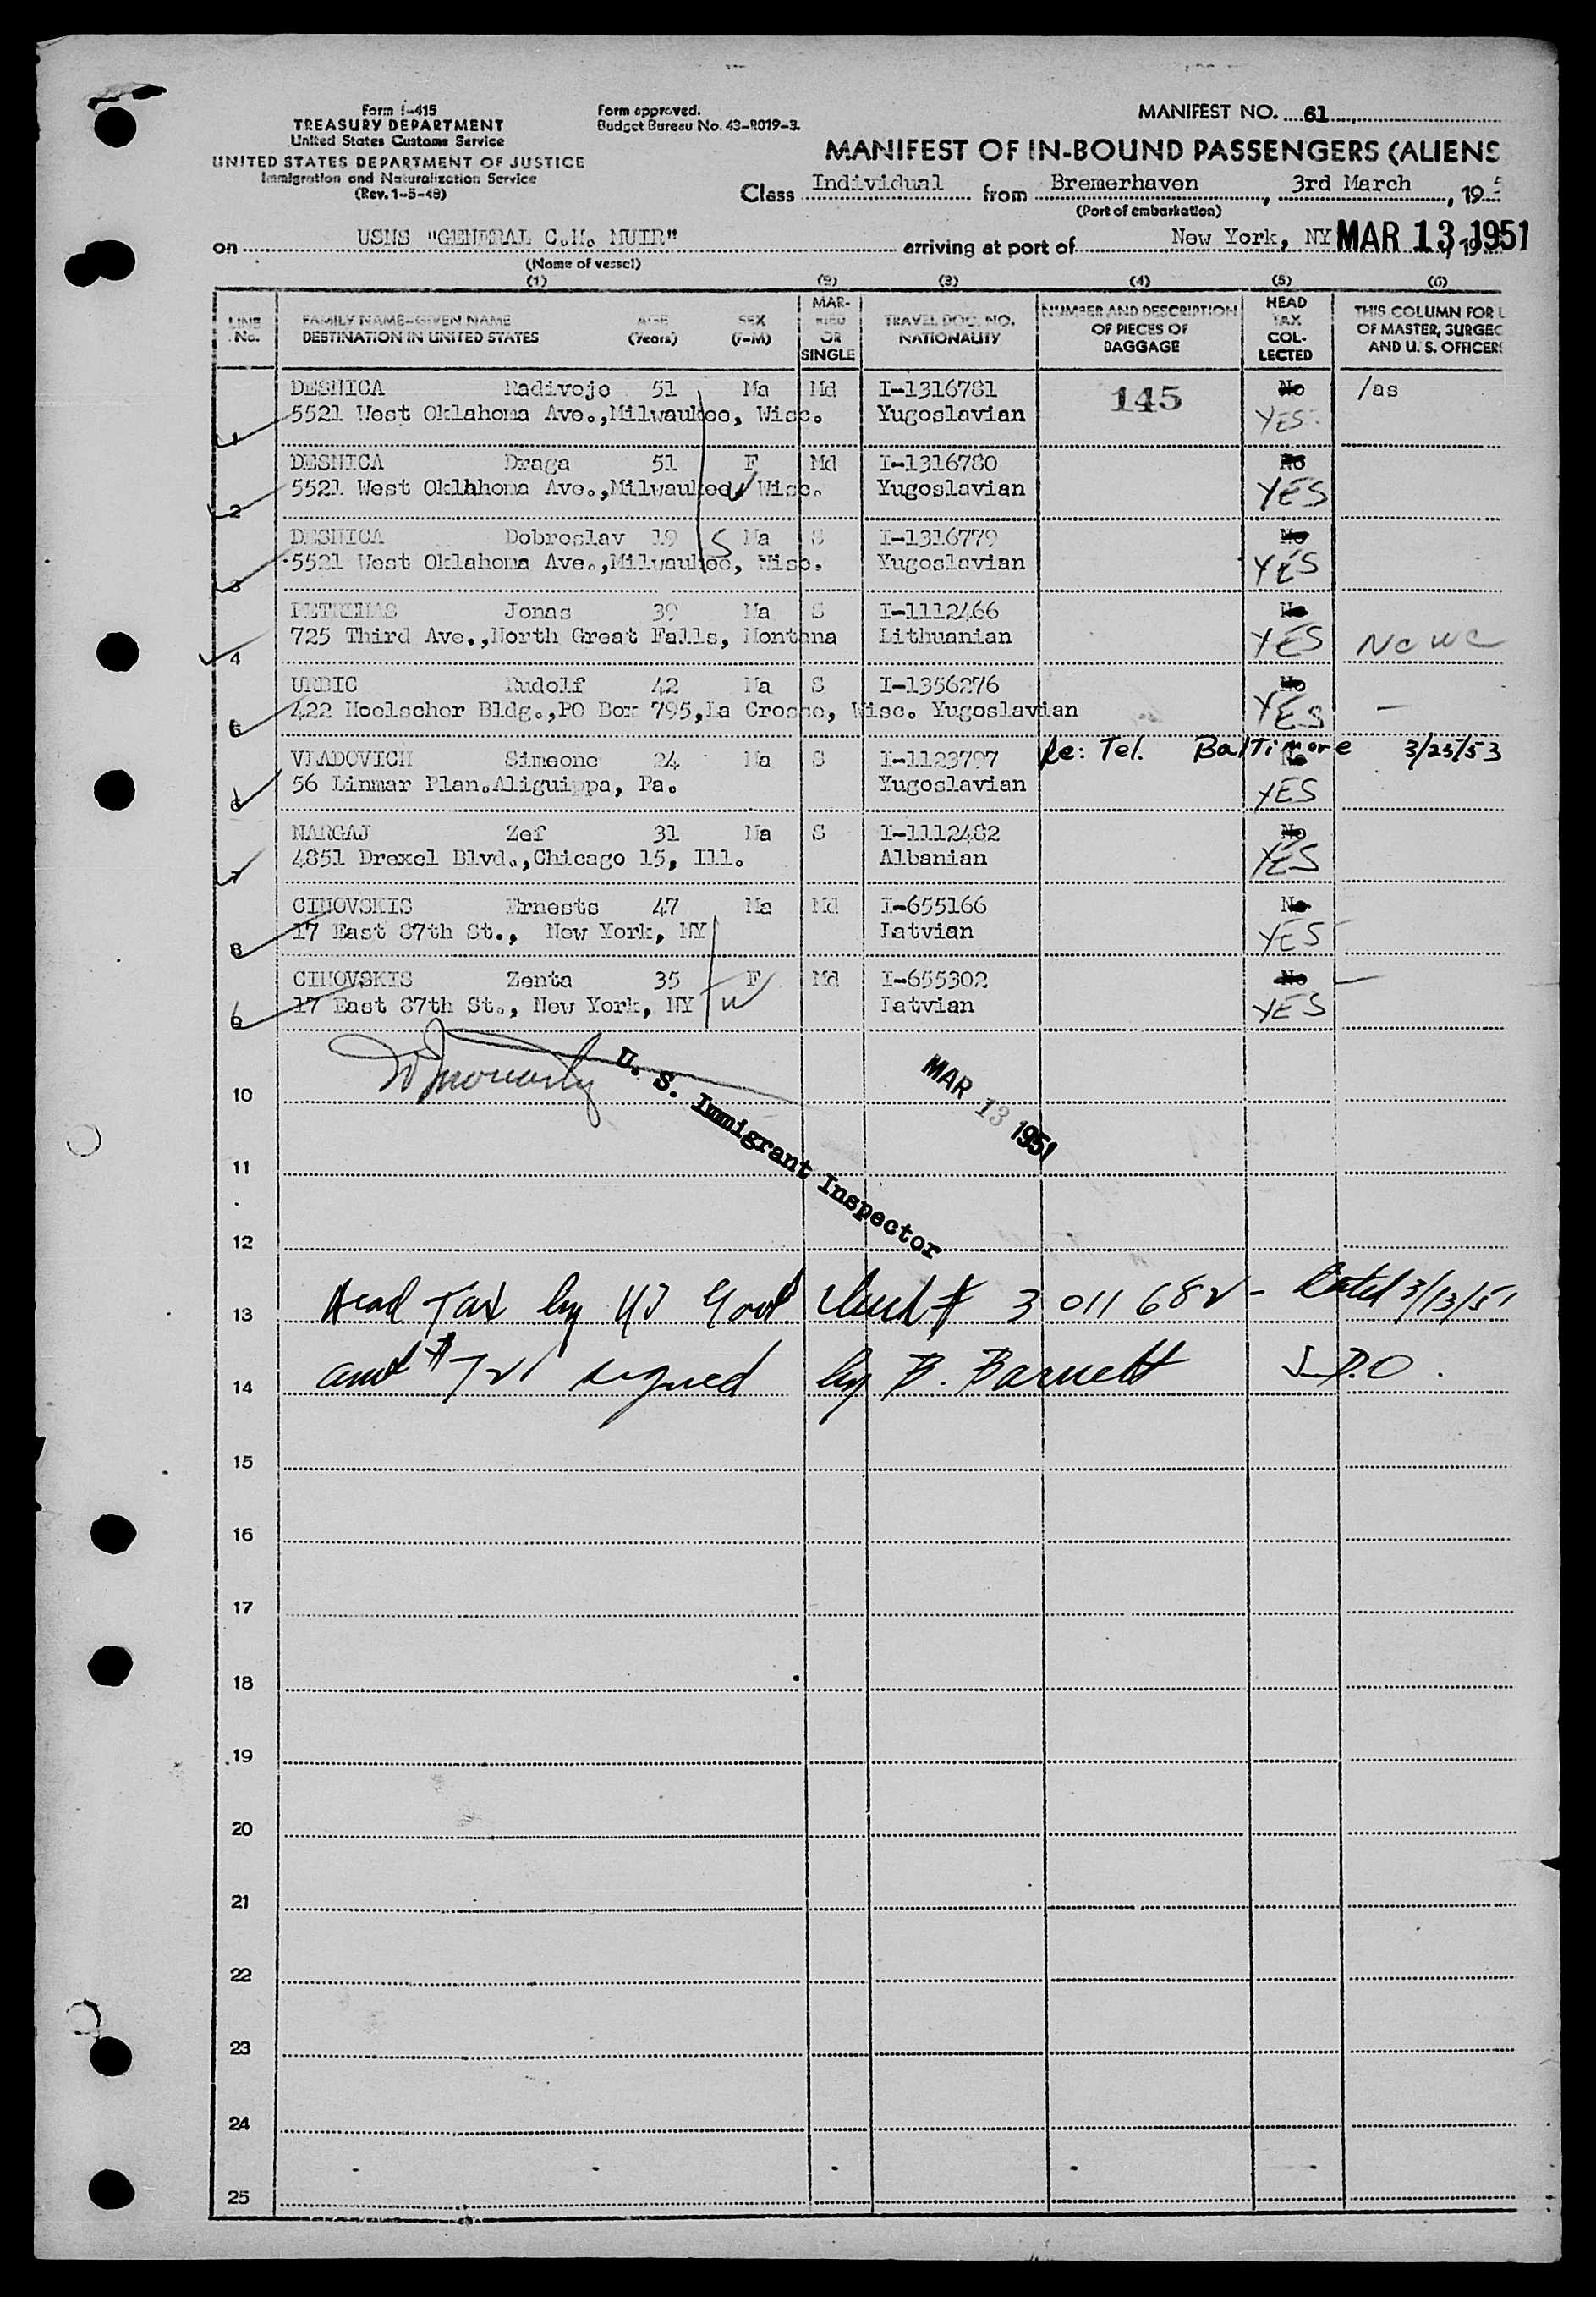 Form I-415
TREASURY DEPARTMENT
United States Customs Service
UNITED STATES DEPARTMENT OF JUSTICE
Immigration and Naturalization Service
(Rev. 1-5-48)
Form approved.
Budget Bureau No. 43-R019-3.
MANIFEST NO. 61
MANIFEST OF IN-BOUND PASSENGERS (ALIENS
Class Individual from Bremerhaven, 3rd March, 195
(Port of embarkation)
on USNS "GENERAL C.H. MUIR" arriving at port of New York, NY MAR 13 1951, 19
(Name of vessel)
(1) (2) (3) (4) (5) (6)
LINE No.
FAMILY NAME-GIVEN NAME AGE SEX
DESTINATION IN UNITED STATES (Years) (F-M)
MAR-RIED OR SINGLE
TRAVEL DOC. NO. NATIONALITY
NUMBER AND DESCRIPTION OF PIECES OF BAGGAGE
HEAD TAX COL-LECTED
THIS COLUMN FOR U
OF MASTER, SURGEO
AND U. S. OFFICERS
DESNICA Radivojo 51 Ma Md I-1316781 145 No /as
1 5521 West Oklahoma Ave.,Milwaukee, Wisc. Yugoslavian YES
DESNICA Draga 51 F Md I-1316780 No
2 5521 West Oklhhoma Ave.,Milwaukee, W Wisc. Yugoslavian YES
DESNICA Dobroslav 19 S Ma S I-1316779 No
3 5521 West Oklahoma Ave.,Milwaukee, Wisc. Yugoslavian YES
PETRENAS Jonas 39 Ma S I-1112466 No
4 725 Third Ave.,North Great Falls, Montana Lithuanian YES NC WC
URBIC Rudolf 42 Ma S I-1356276 No
5 422 Hoelscher Bldg.,PO Box 795,La Crosse, Wisc. Yugoslavian YES —
Re: Tel. Baltimore 3/23/53
VLADOVICH Simeone 24 Ma S I-1123797 No
6 56 Linmar Plan.Aliguippa, Pa. Yugoslavian YES
NARGAJ Zef 31 Ma S I-1112482 No
7 4851 Drexel Blvd.,Chicago 15, Ill. Albanian YES
CINOVSKIS Ernests 47 Ma Md I-655166 No
8 17 East 87th St., New York, NY Latvian YES
CINOVSKIS Zenta 35 F Md I-655302 No —
9 17 East 87th St., New York, NY W Latvian YES
U. S. Immigrant Inspector
MAR 13 1951
10
11
12
13 Head Tax by US Govt Check # 3 011 682 - Dated 3/13/51
14 amt $ 72 signed by B. Barnett S.D.O.
15
16
17
18
19
20
21
22
23
24
25